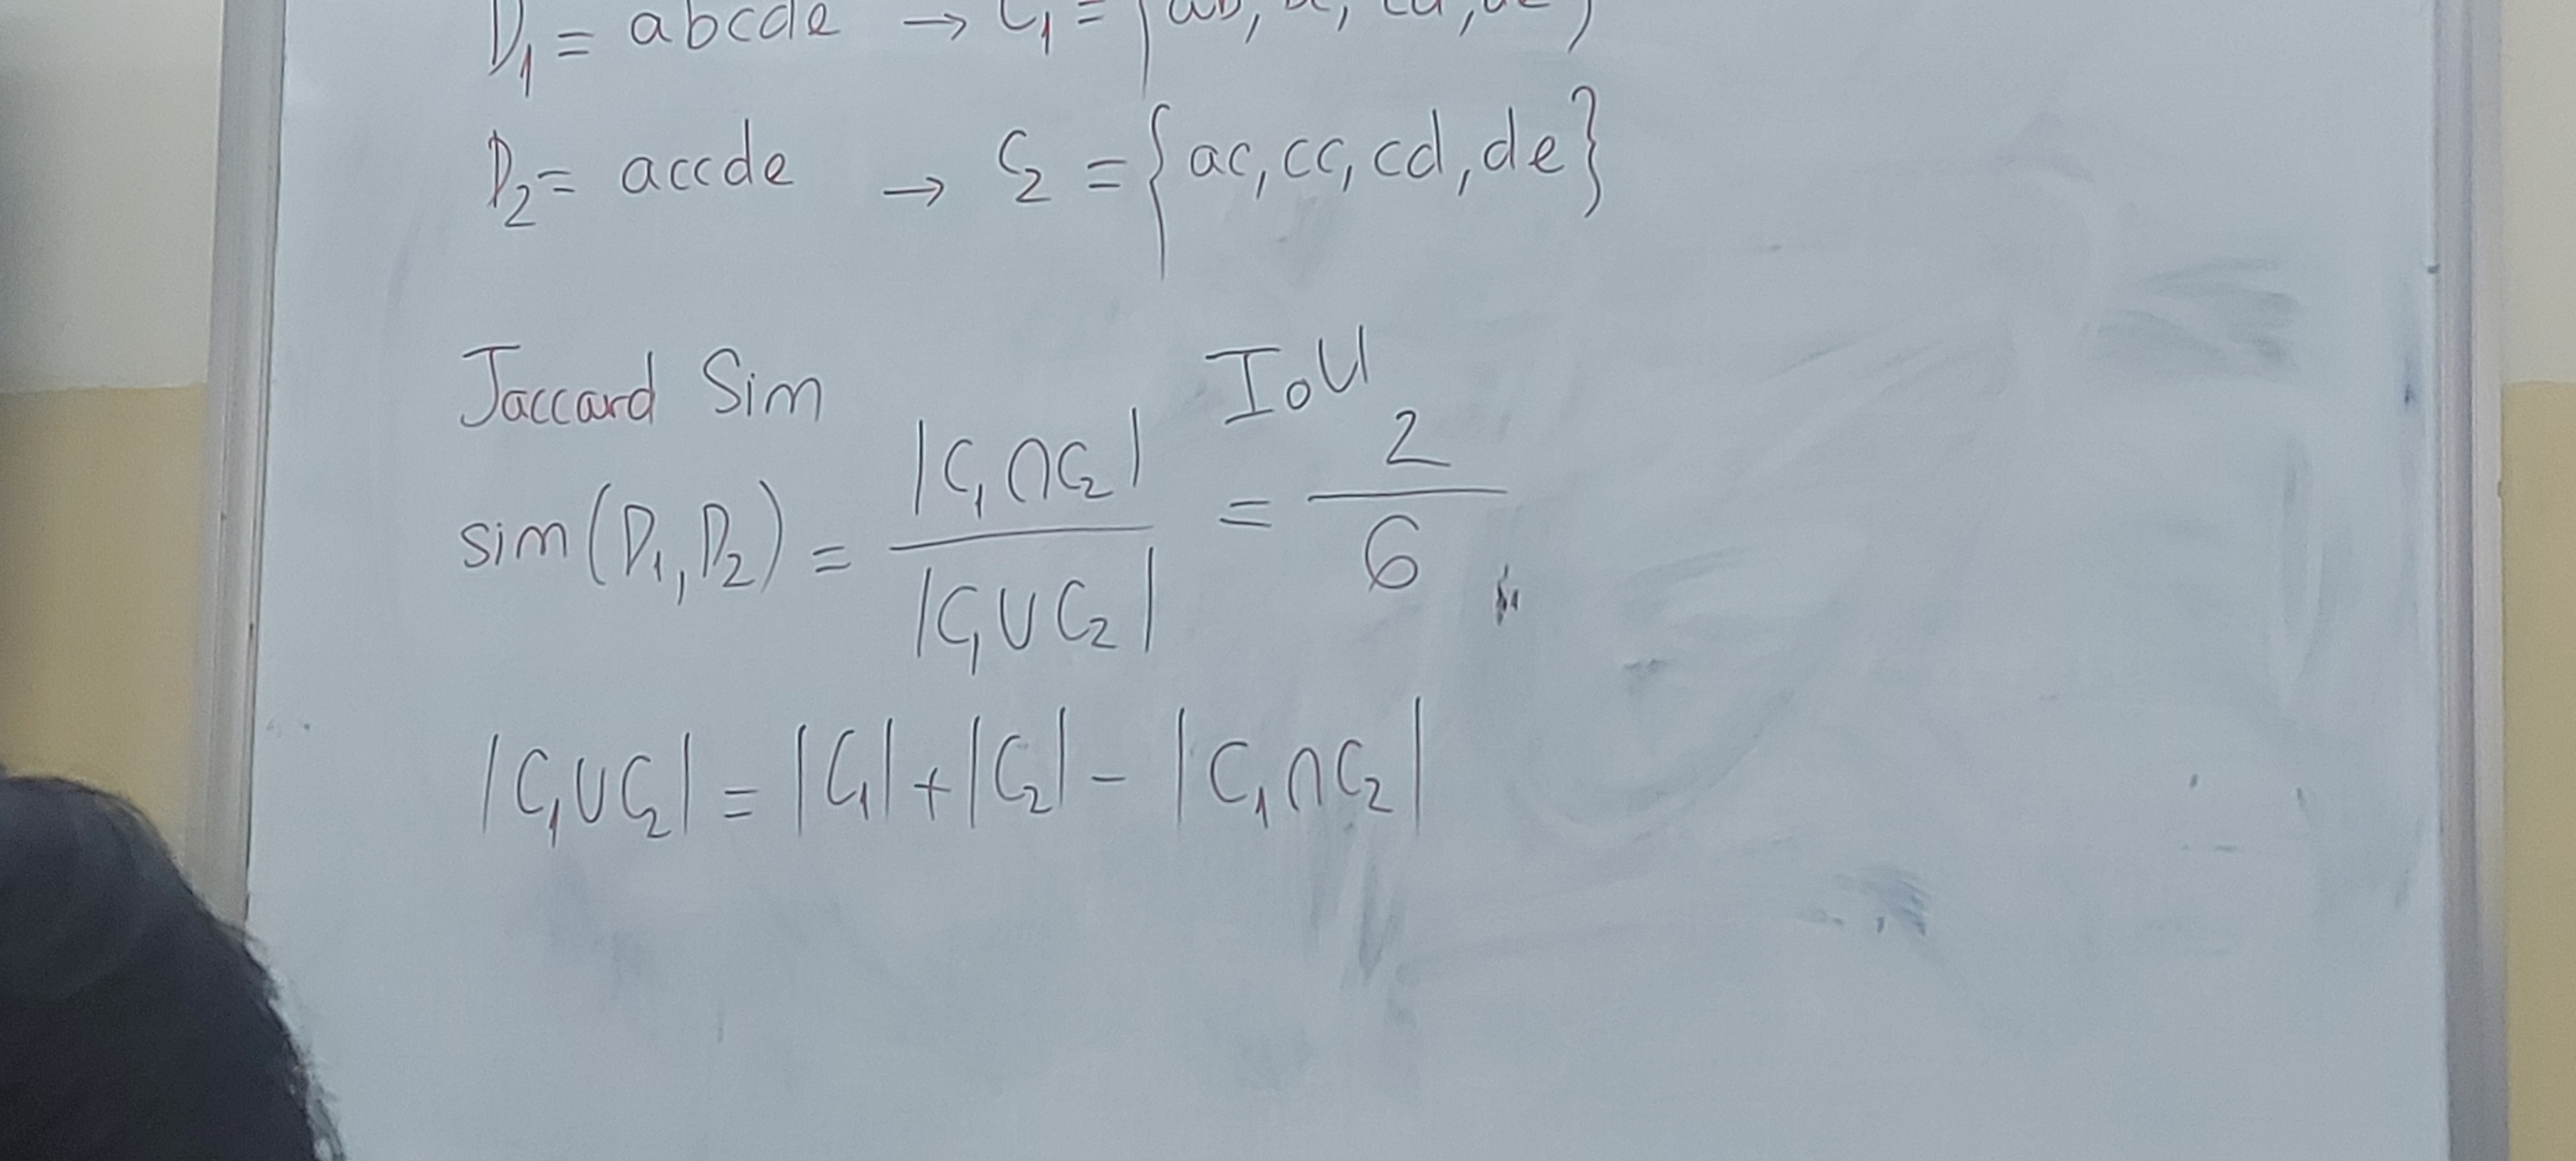 D₁ = abcde → C₁ = {ab, bc, cd, de}
D₂ = accde → C₂ = {ac, cc, cd, de}
Jaccard Sim IoU
sim(D₁, D₂) = |C₁ ∩ C₂| / |C₁ ∪ C₂| = 2 / 6
|C₁ ∪ C₂| = |C₁| + |C₂| - |C₁ ∩ C₂|